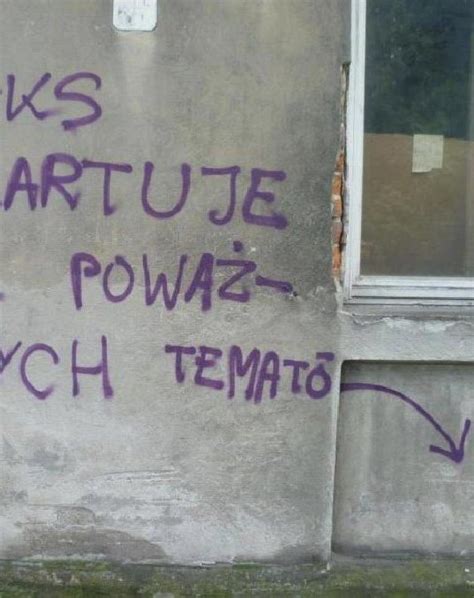 KS
ARTUJE
POWAŻ-
YCH TEMATÓ